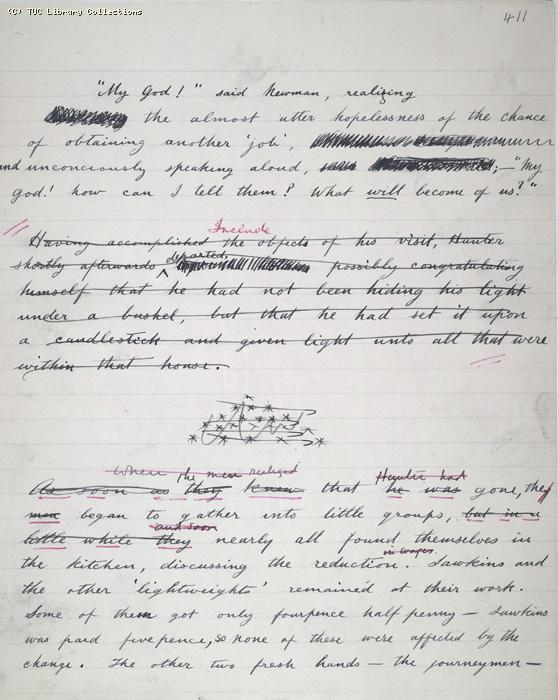 (c) TUC Library Collections
411
"My God!" said Newman, realizing
the almost utter hopelessness of the chance
of obtaining another 'job',
and unconciously speaking aloud, ;—"My
god! how can I tell them? What will become of us?"
Include
Having accomplished the objects of his visit, Hunter
departed,
shortly afterwards possibly congratulating
himself that he had not been hiding his light
under a bushel, but that he had set it upon
a candlestick and given light unto all that were
within that house.
When the men realized Hunter had
As soon as they knew that he was gone, they
men began to gather into little groups, but in a
and soon
little while they nearly all found themselves in
the kitchen, discussing the reduction. Sawkins and
in wages
the other 'lightweights' remained at their work.
Some of them got only fourpence half penny — Sawkins
was paid fivepence, so none of these were affected by the
change. The other two fresh hands — the journeymen —